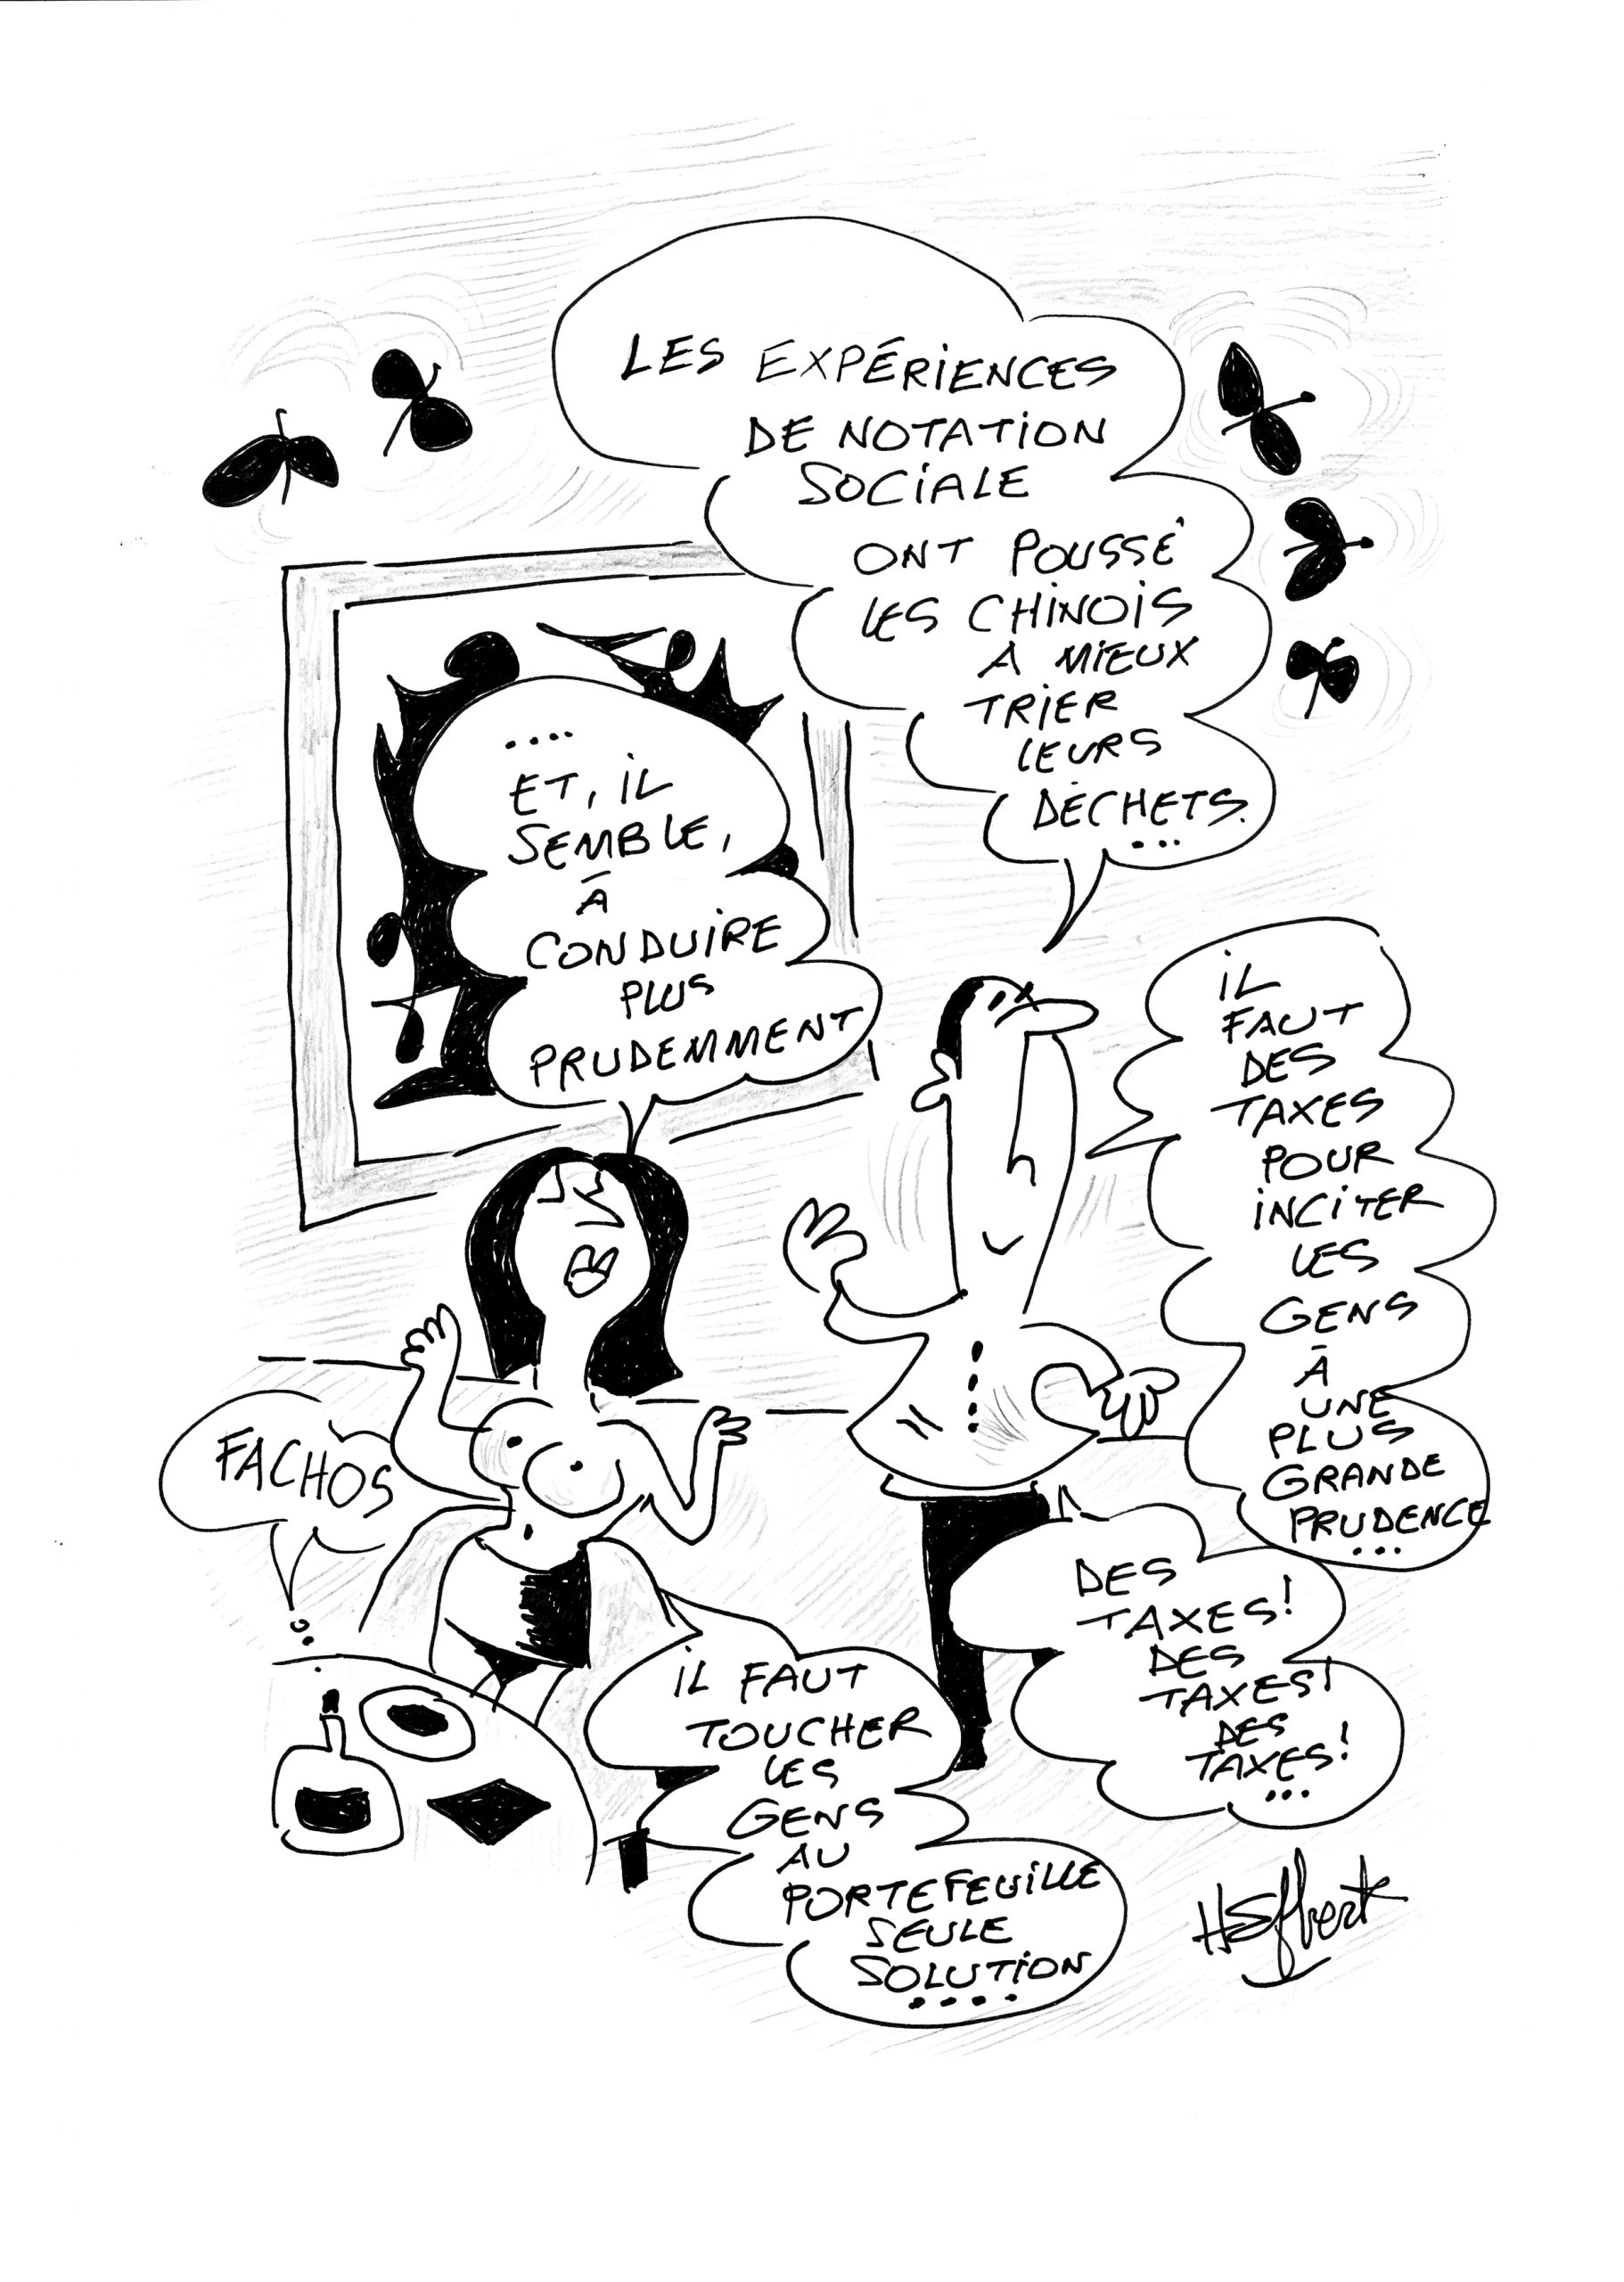 LES EXPÉRIENCES
DE NOTATION
SOCIALE
ONT POUSSÉ
LES CHINOIS
A MIEUX
TRIER
LEURS
DÉCHETS.
...
....
ET, IL
SEMBLE,
À
CONDUIRE
PLUS
PRUDEMMENT
IL
FAUT
DES
TAXES
POUR
INCITER
LES
GENS
À
UNE
PLUS
GRANDE
PRUDENCE
...
FACHOS
IL FAUT
TOUCHER
LES
GENS
AU
PORTEFEUILLE
SEULE
SOLUTION
....
DES
TAXES!
DES
TAXES!
DES
TAXES!
...